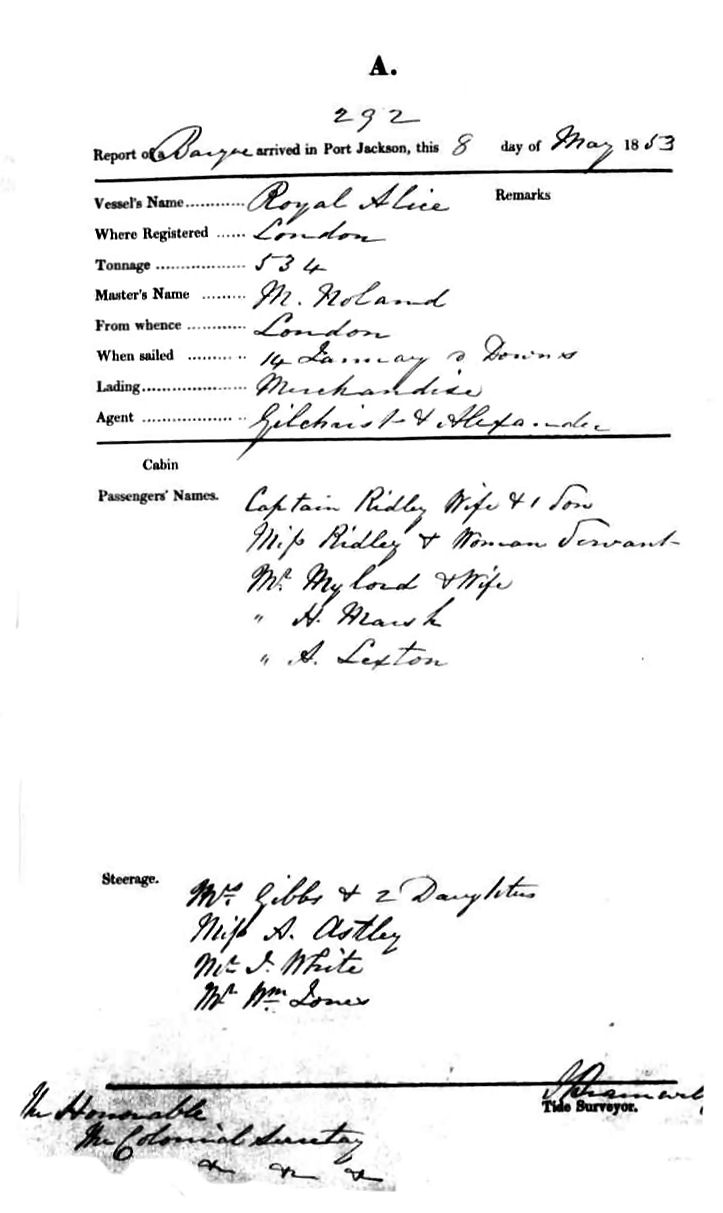 A.
292
Report of a Barque arrived in Port Jackson, this 8 day of May 1853
Vessel's Name............ Royal Alice Remarks
Where Registered ...... London
Tonnage .................. 534
Master's Name ......... M. Noland
From whence ............ London
When sailed ......... .. 14 January & Downs
Lading..................... Merchandise
Agent .................. .. Gilchrist & Alexander
Cabin
Passengers' Names. Captain Ridley Wife & 1 Son
Miss Ridley & Woman Servant
Mr. Mylord & Wife
" H. Marsh
" A. Lexton
Steerage. Mrs. Gibbs & 2 Daughters
Miss A. Astley
Mr J. White
Mr Wm Jones
Tide Surveyor.
The Honorable
The Colonial Secretary
&c &c &c